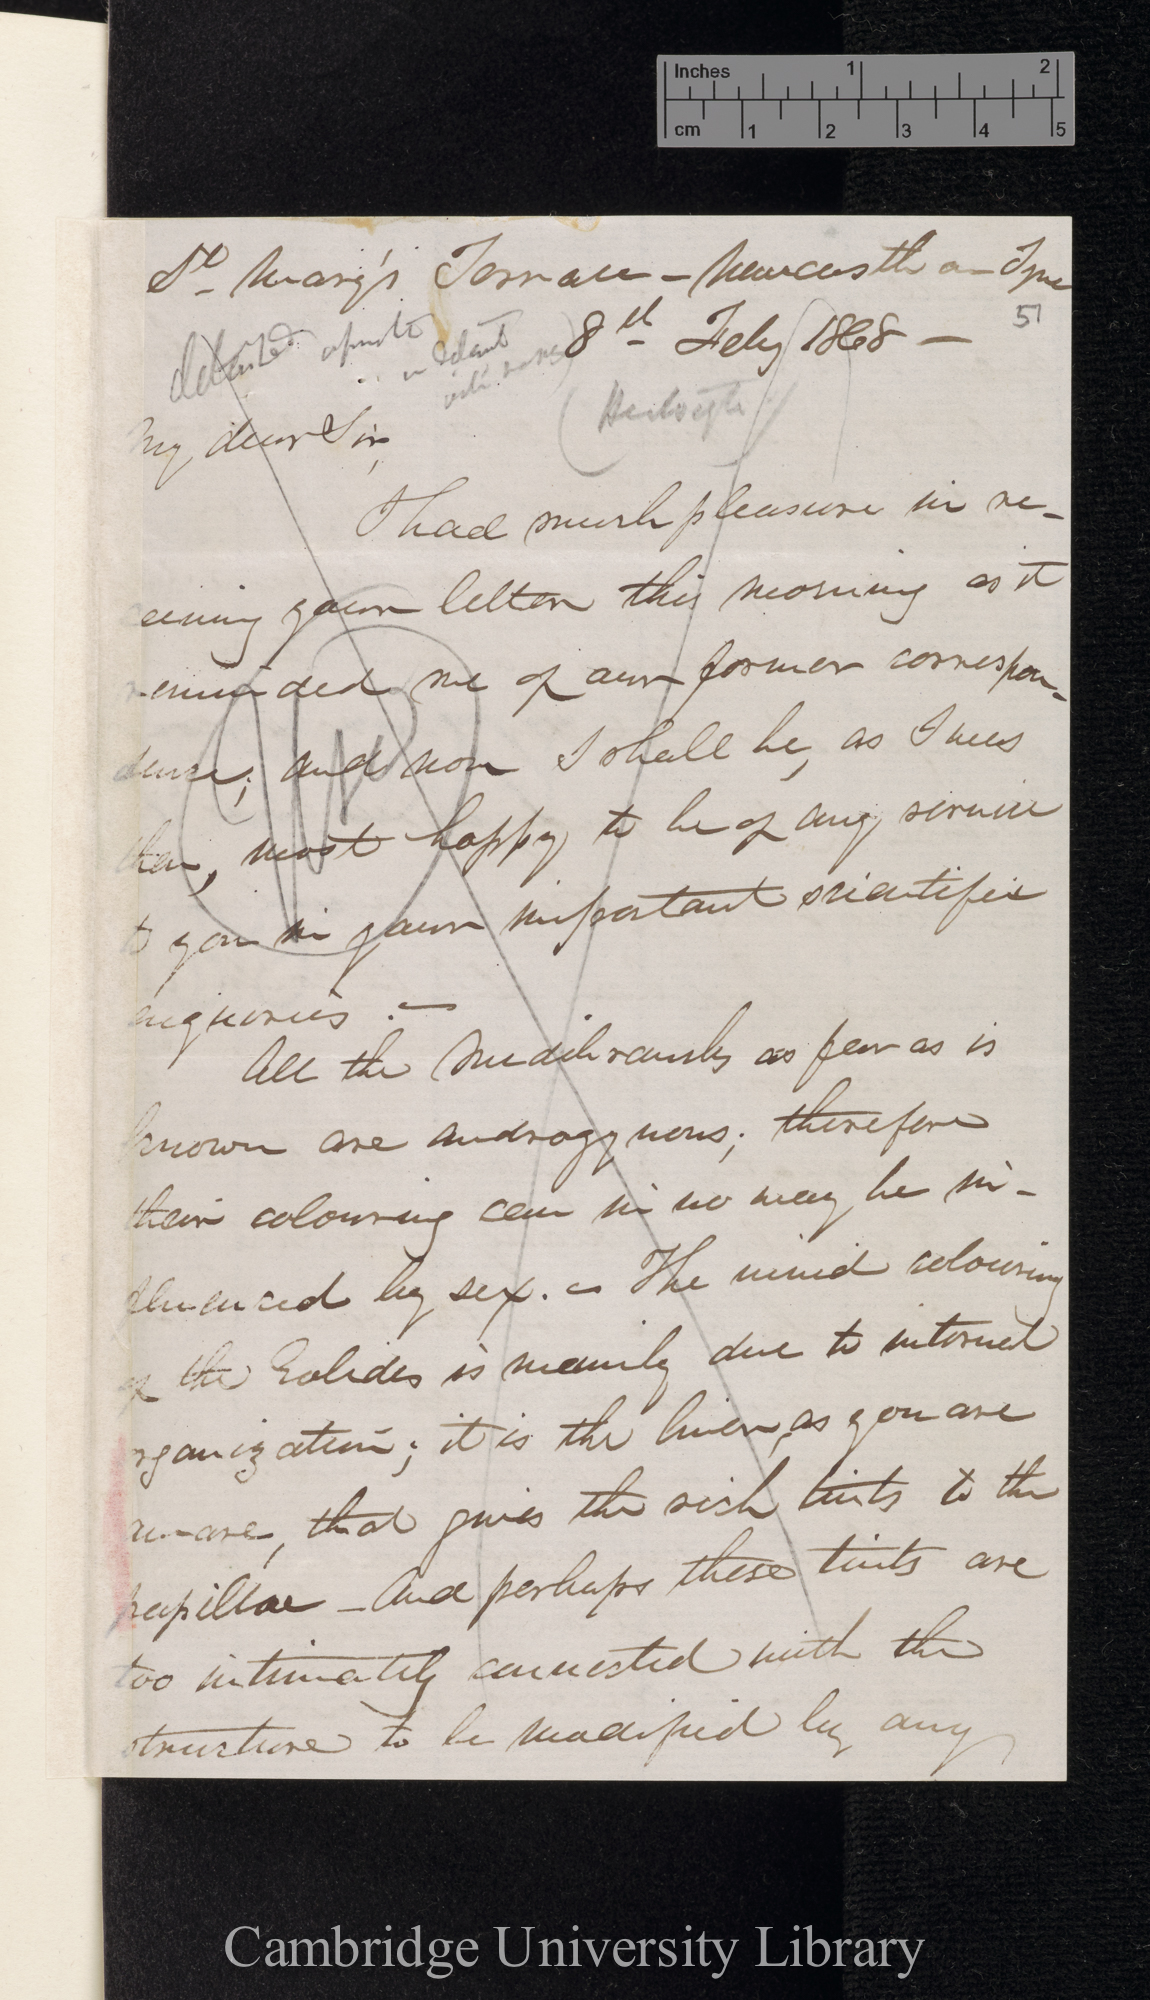 Inches 1 2
cm 1 2 3 4 5
St. Mary's Terrace — Newcastle on Tyne
51
8th Feby 1868 —
My dear Sir,
I had much pleasure in re-
ceiving your letter this morning as it
reminded me of our former correspon-
dence; and now I shall be, as I was
then, most happy to be of any service
to you in your important scientific
enquories. —
All the Nudibranchs as far as is
known are androgynous; therefore
their colouring can in no way be in-
fluenced by sex. — The vivid colouring
of the Eolides is mainly due to internal
organization; it is the liver, as you are
aware, that gives the rich tints to the
papillae — And perhaps these tints are
too intimately connected with the
structure to be modified by any
Cambridge University Library